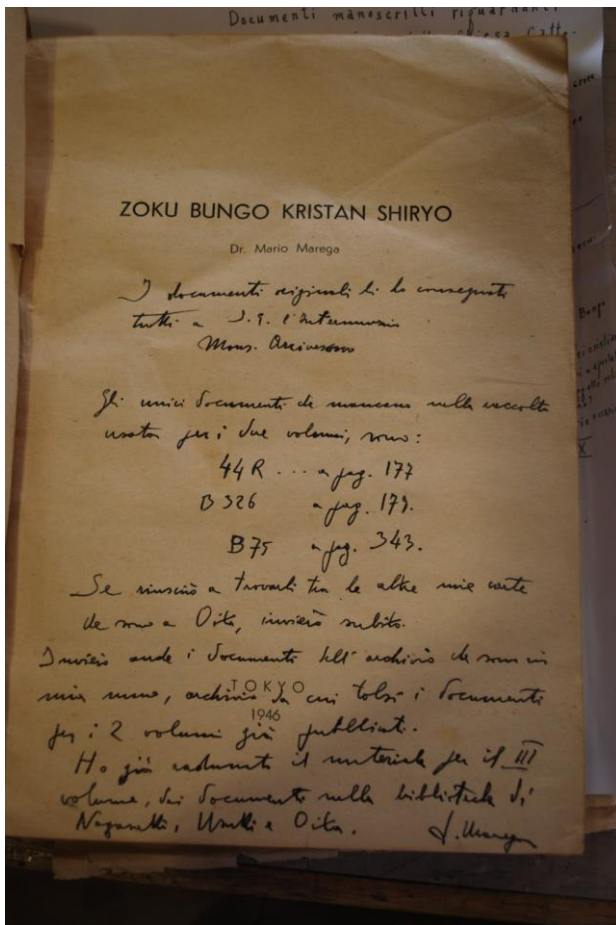 Documenti manoscritti riguardanti
Chiesa Catto-
ZOKU BUNGO KRISTAN SHIRYO
Dr. Mario Marega
I documenti originali li ho consegnati
tutti a S. E. l'Internunzio
Mons.
Gli unici documenti che mancano nella raccolta
usata per i due volumi, sono:
44 R ... a pag. 177
B 326 a pag. 179.
B 75 a pag. 343.
Se riuscirò a trovarli tra le altre mie carte
che sono a Oita, invierò subito.
Invierò anche i documenti dell'archivio che sono in
mia mano, archivio da cui tolsi i documenti
TOKYO
1946
per i 2 volumi già pubblicati.
Ho già radunato il materiale per il III
volume, dai documenti nella biblioteca di
Nagasaki, Usuki e Oita. Marega
Bungo
X